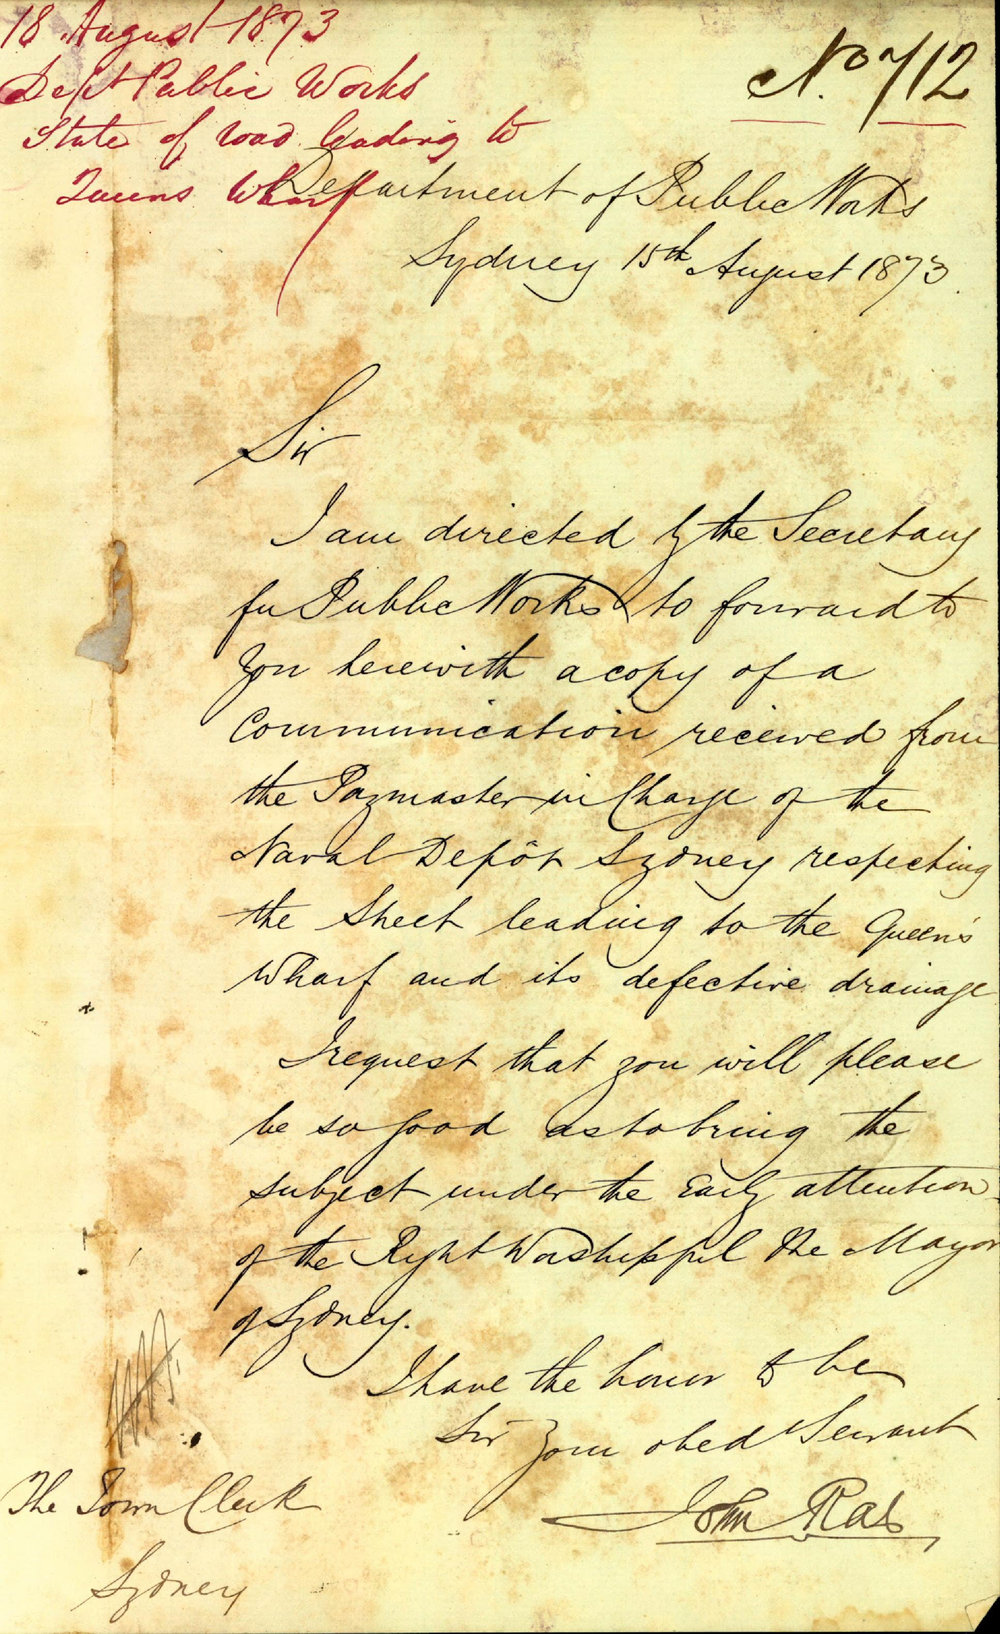 18 August 1873
Dept Public Works
State of road leading to
Queens Wharf
No 712
Department of Public Works
Sydney 15th August 1873.
Sir
I am directed by the Secretary
for Public Works to forward to
you herewith a copy of a
communication received from
the Paymaster in Charge of the
Naval Depôt Sydney respecting
the Street leading to the Queen's
Wharf and its defective drainage
I request that you will please
be so good as to bring the
subject under the Early attention
of the Right Worshipful the Mayor
of Sydney.
I have the honor to be
Sir Your obed Servant
John Rae
The Town Clerk
Sydney